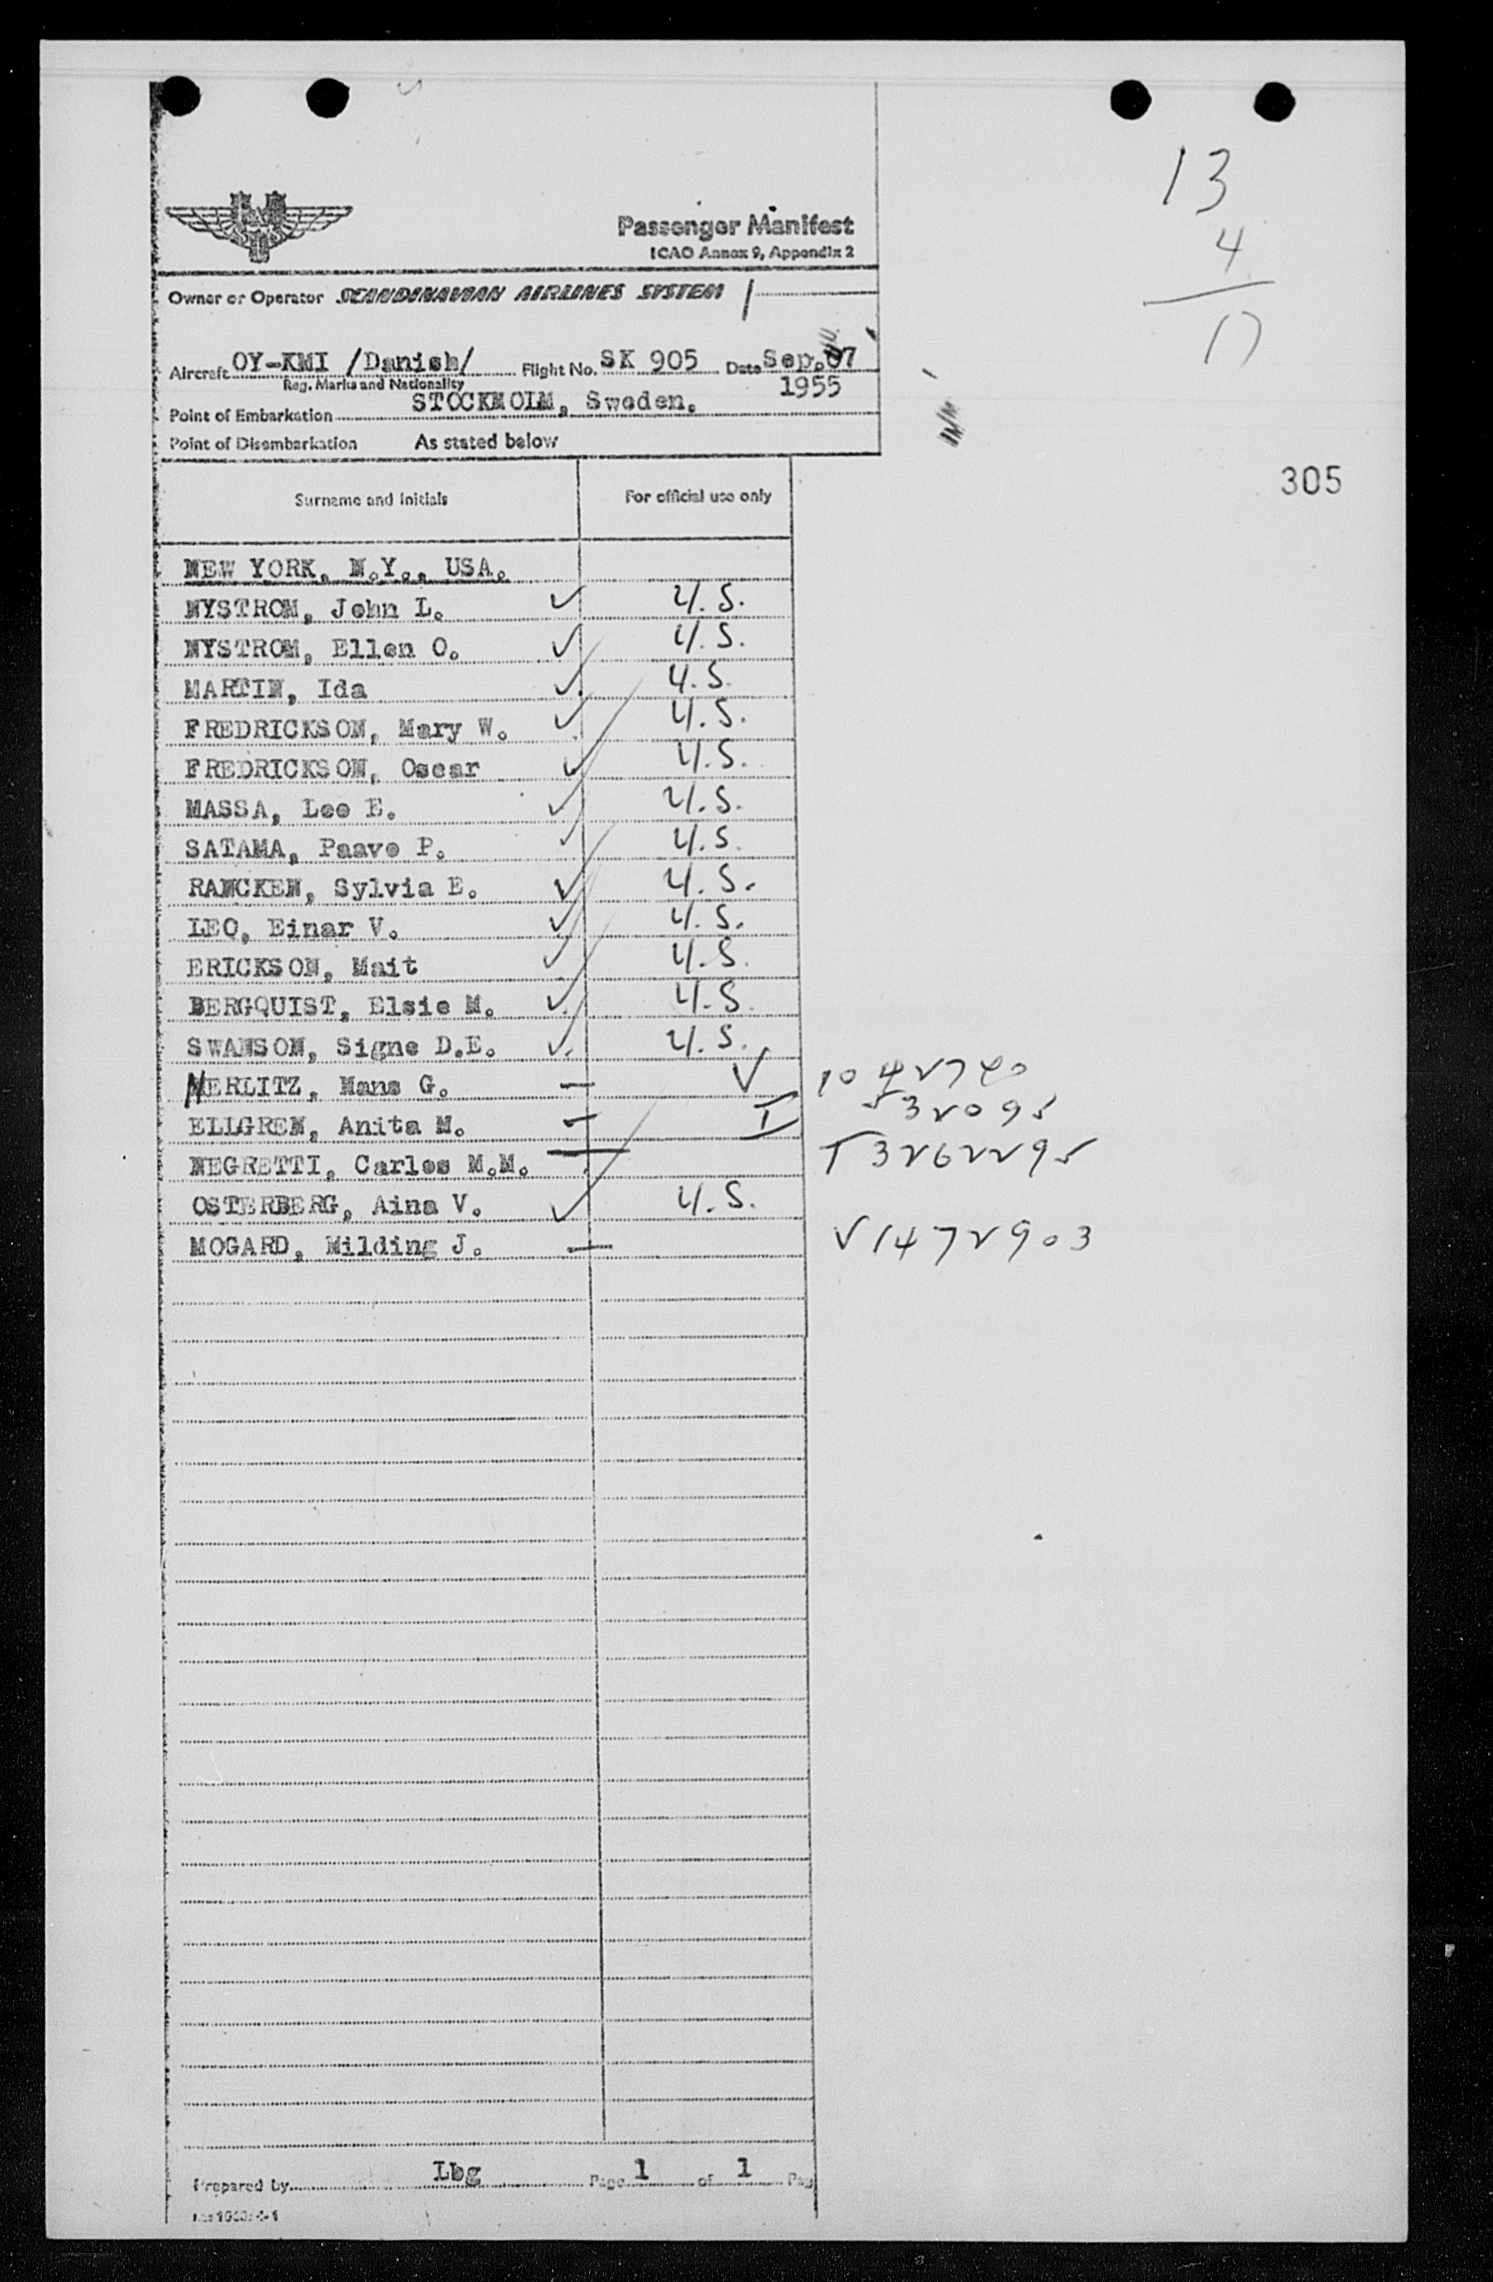 13
4
17
Passenger Manifest
ICAO Annex 9, Appendix 2
Owner or Operator SCANDINAVIAN AIRLINES SYSTEM
Aircraft OY-KMI /Danish/ Flight No. SK 905 Date Sep. 07
Reg. Marks and Nationality 1955
Point of Embarkation STOCKHOLM, Sweden.
Point of Disembarkation As stated below
305
Surname and Initials For official use only
NEW YORK, N.Y., USA.
NYSTROM, John L. ✓ U.S.
NYSTROM, Ellen O. ✓ U.S.
MARTIN, Ida ✓ U.S.
FREDRICKSON, Mary W. ✓ U.S.
FREDRICKSON, Oscar ✓ U.S.
MASSA, Leo E. ✓ U.S.
SATAMA, Paavo P. ✓ U.S.
RANCKEN, Sylvia E. ✓ U.S.
LEO, Einar V. ✓ U.S.
ERICKSON, Mait ✓ U.S.
BERGQUIST, Elsie M. ✓ U.S.
SWANSON, Signe D.E. ✓ U.S.
NERLITZ, Hans G. — V 1042720
ELLGREN, Anita M. — I 532095
NEGRETTI, Carlos M.M. — T 3262295
OSTERBERG, Aina V. ✓ U.S.
MOGARD, Hilding J. — V1472903
Prepared by Lbg Page 1 of 1 Pag